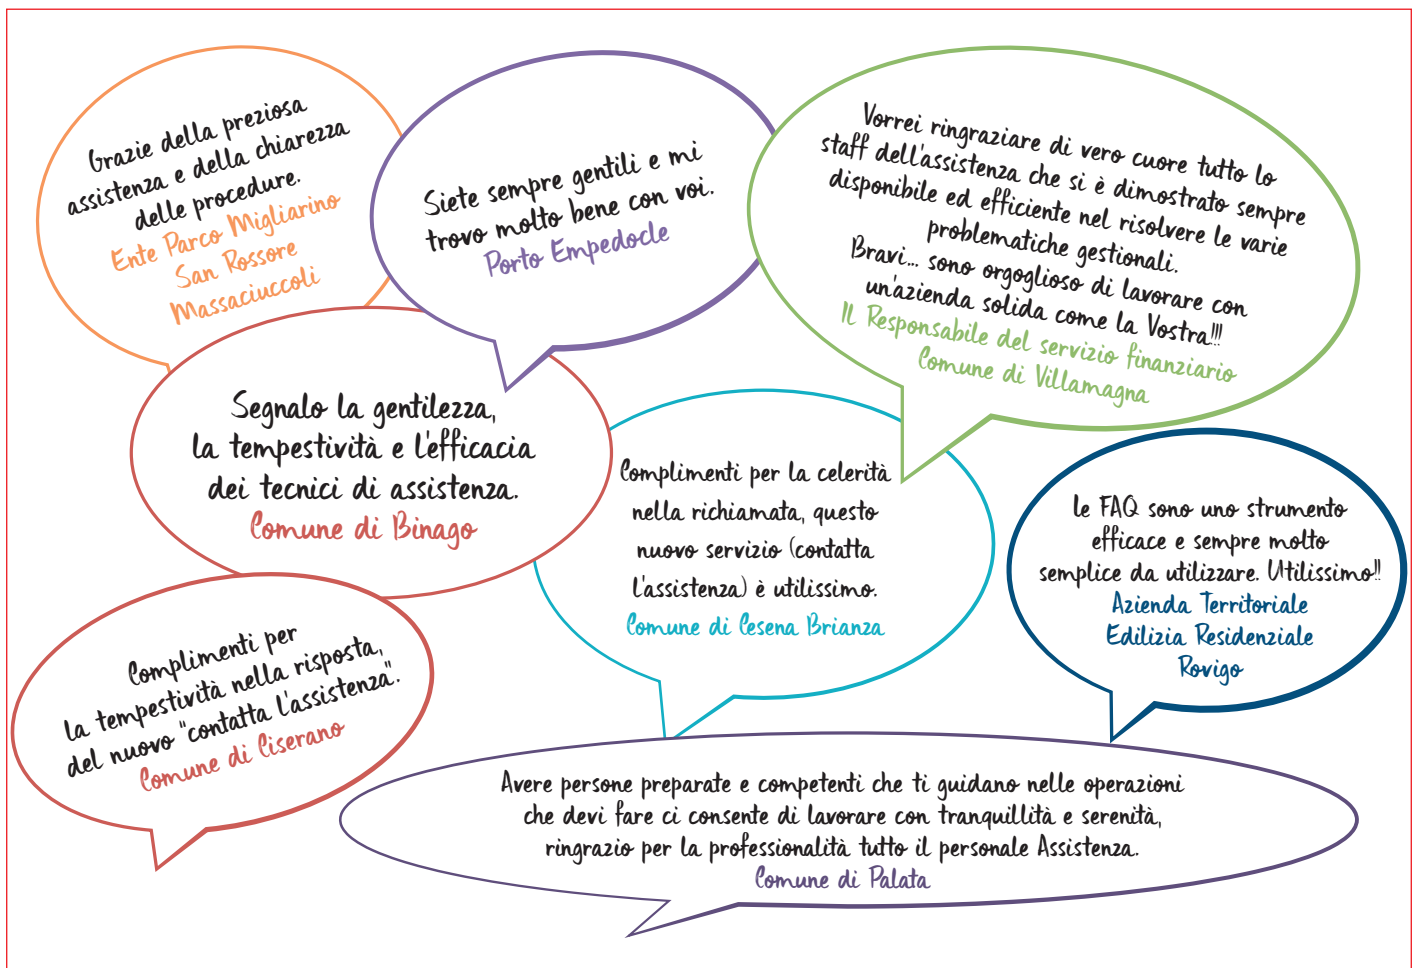 Grazie della preziosa
assistenza e della chiarezza
delle procedure.
Ente Parco Migliarino
San Rossore
Massaciuccoli
Siete sempre gentili e mi
trovo molto bene con voi.
Porto Empedocle
Vorrei ringraziare di vero cuore tutto lo
staff dell'assistenza che si è dimostrato sempre
disponibile ed efficiente nel risolvere le varie
problematiche gestionali.
Bravi... sono orgoglioso di lavorare con
un'azienda solida come la Vostra!!!
IL Responsabile del servizio finanziario
Comune di Villamagna
Segnalo la gentilezza,
la tempestività e l'efficacia
dei tecnici di assistenza.
Comune di Binago
Complimenti per la celerità
nella richiamata, questo
nuovo servizio (contatta
l'assistenza) è utilissimo.
Comune di Cesena Brianza
le FAQ sono uno strumento
efficace e sempre molto
semplice da utilizzare. Utilissimo!!
Azienda Territoriale
Edilizia Residenziale
Rovigo
Complimenti per
la tempestività nella risposta,
del nuovo "contatta l'assistenza".
Comune di Ciserano
Avere persone preparate e competenti che ti guidano nelle operazioni
che devi fare ci consente di lavorare con tranquillità e serenità,
ringrazio per la professionalità tutto il personale Assistenza.
Comune di Palata